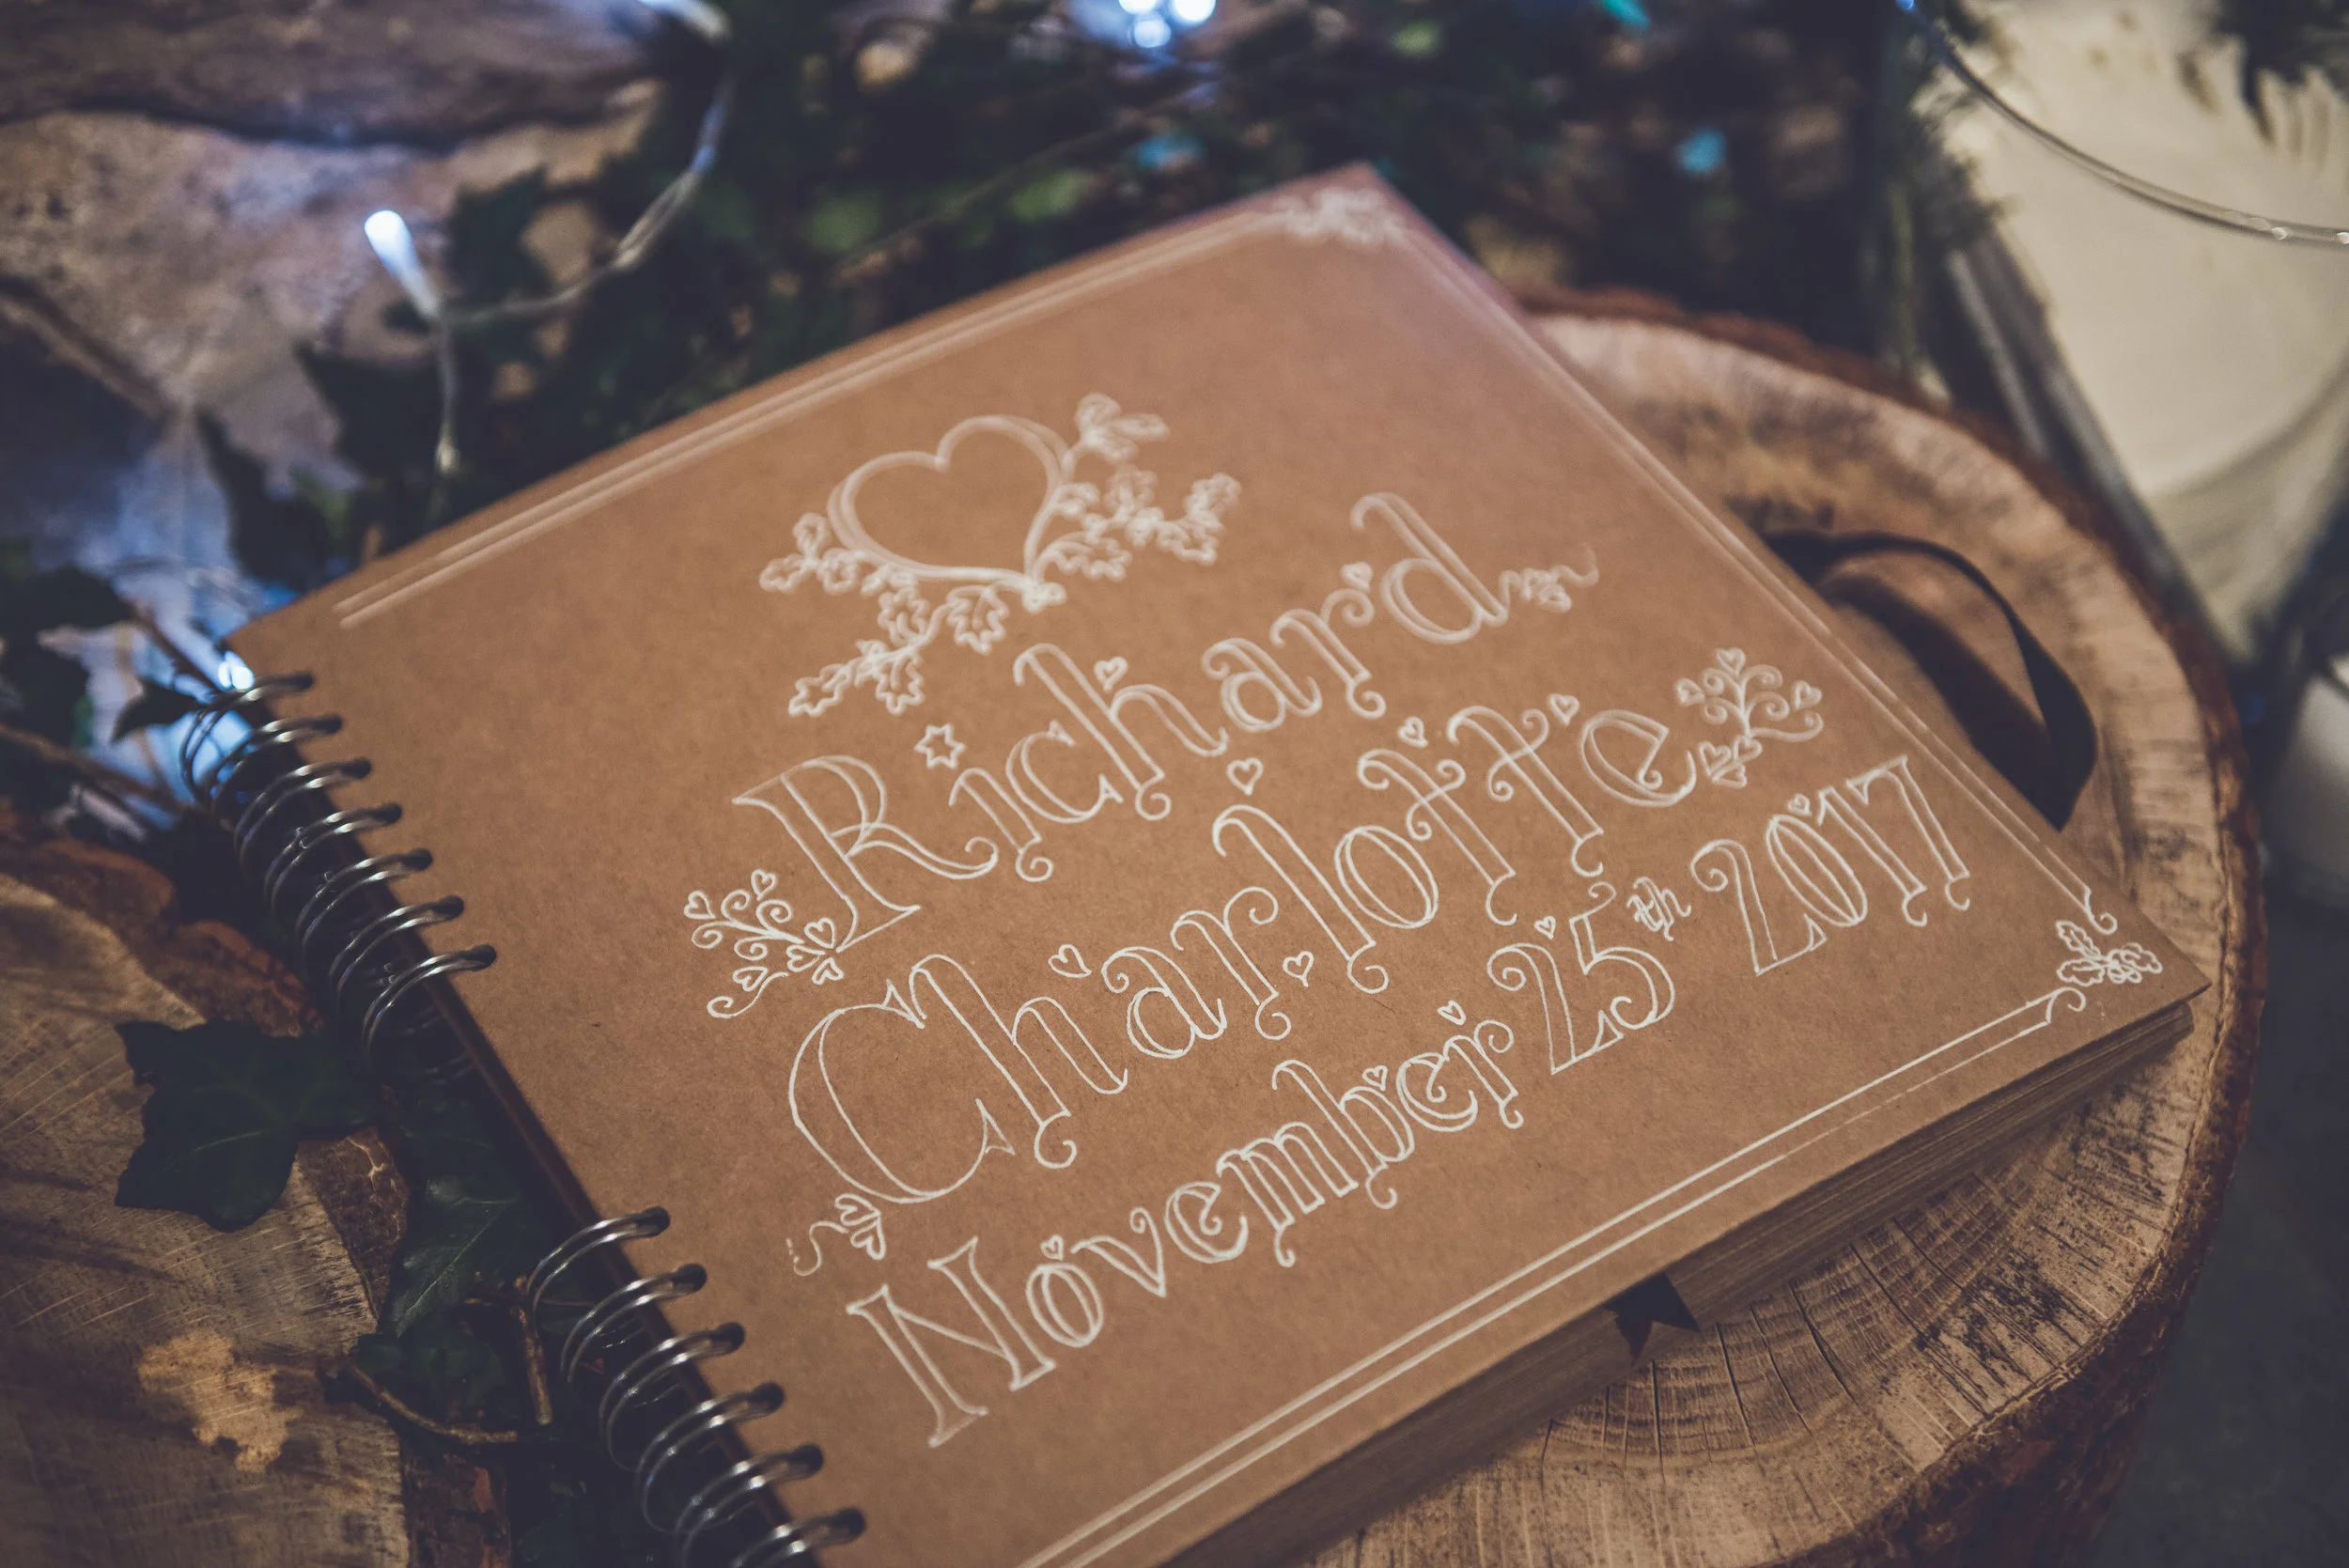 Richard
Charlotte
November 25th 2017